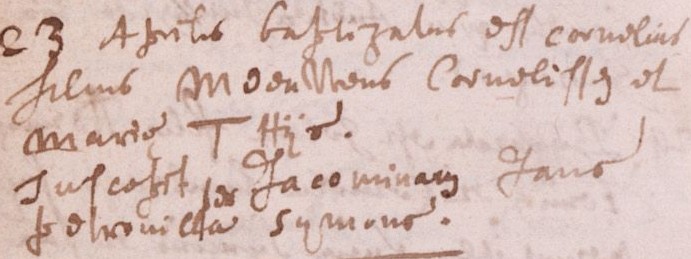 23 Aprilis baptizatus est cornelius
filius Meeuwens Cornelissen et
Marie Thijs.
Suscept per Jacominam Jans
petronilla Symons.